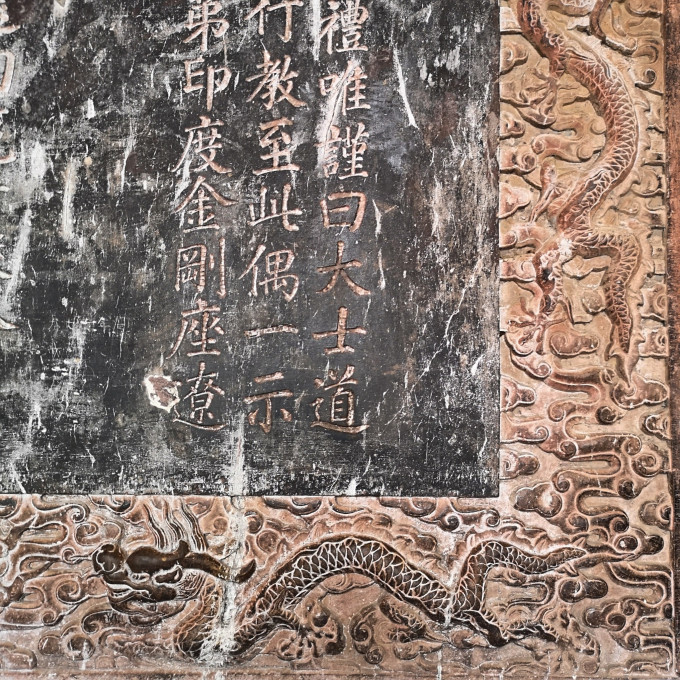 禮唯謹曰大士道
行教至此偶一示
弟印度金剛座遼